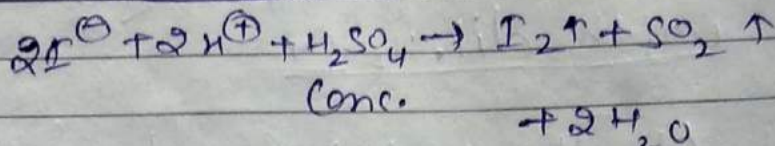 2I⊖ + 2H⊕ + H₂SO₄ → I₂↑ + SO₂ ↑
Conc.
+ 2H₂O